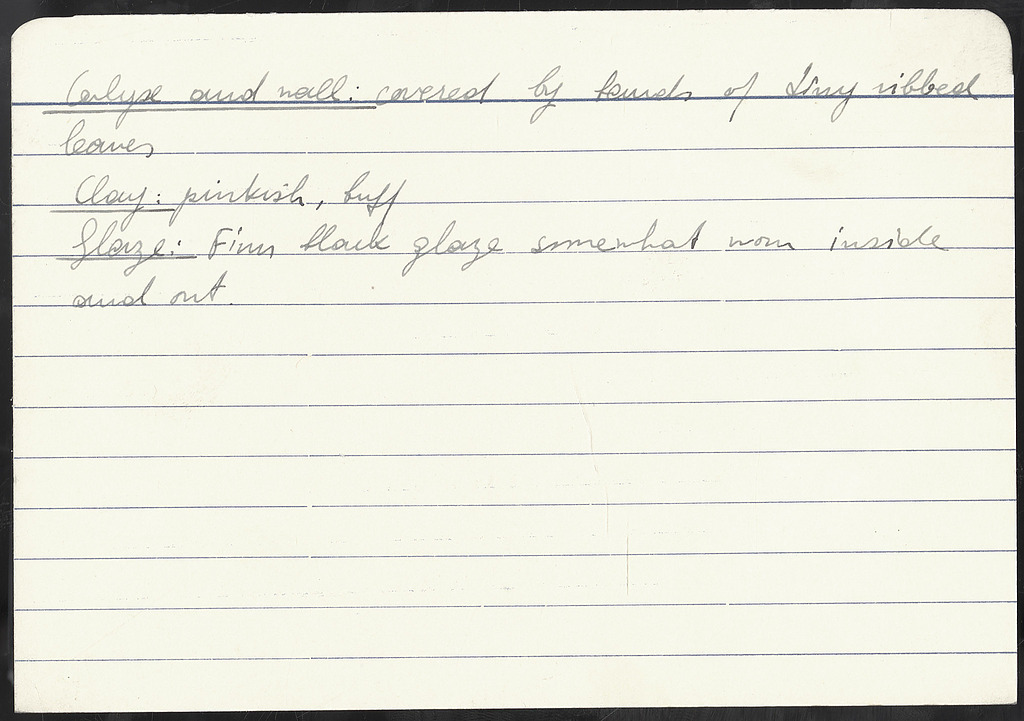 Calyx and wall: covered by bands of tiny ribbed
leaves
Clay: pinkish, buff
Glaze: Firm black glaze somewhat worn inside
and out.